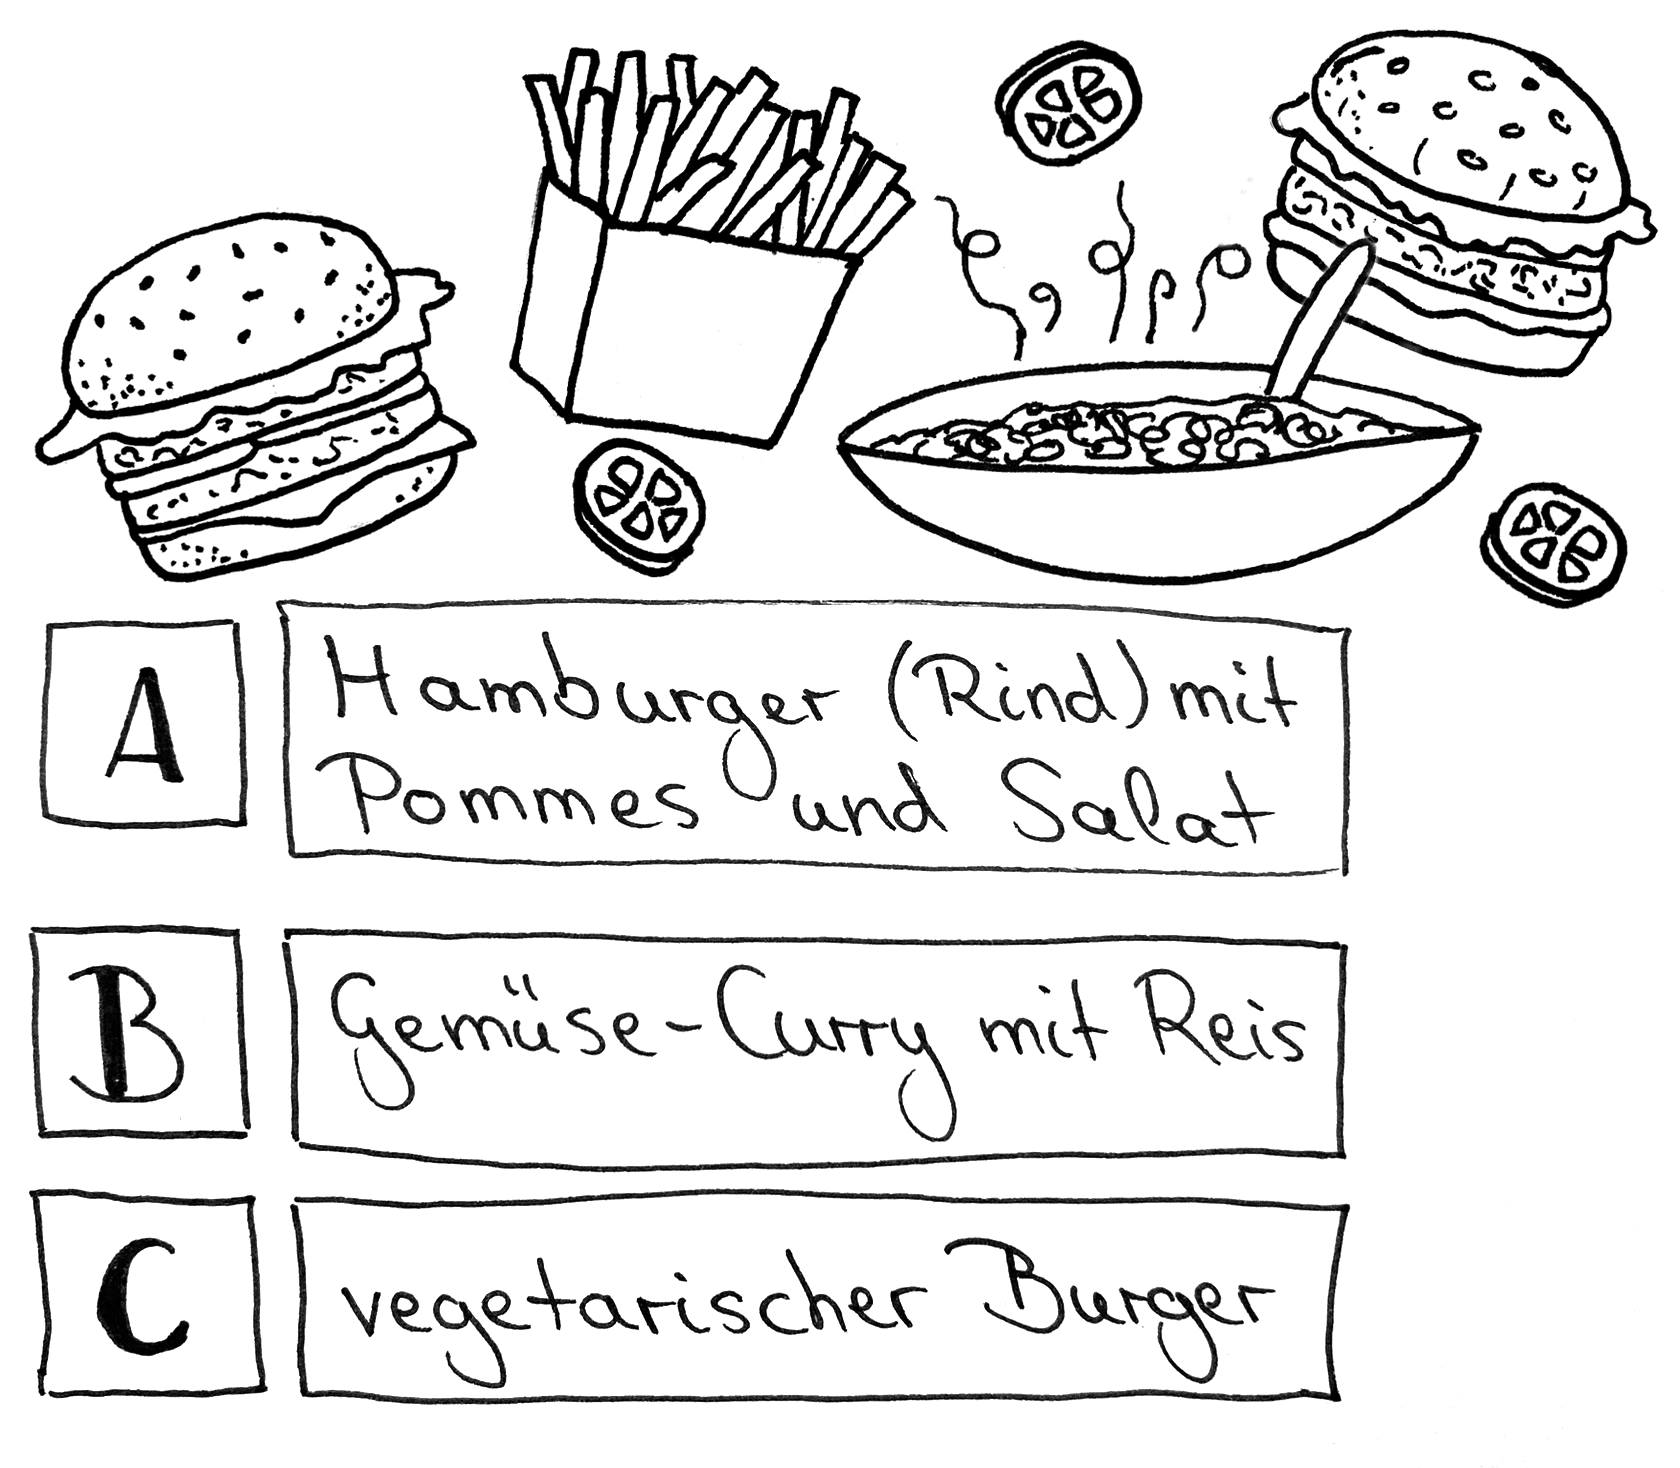 A
Hamburger (Rind) mit
Pommes und Salat
B
Gemüse-Curry mit Reis
C
vegetarischer Burger